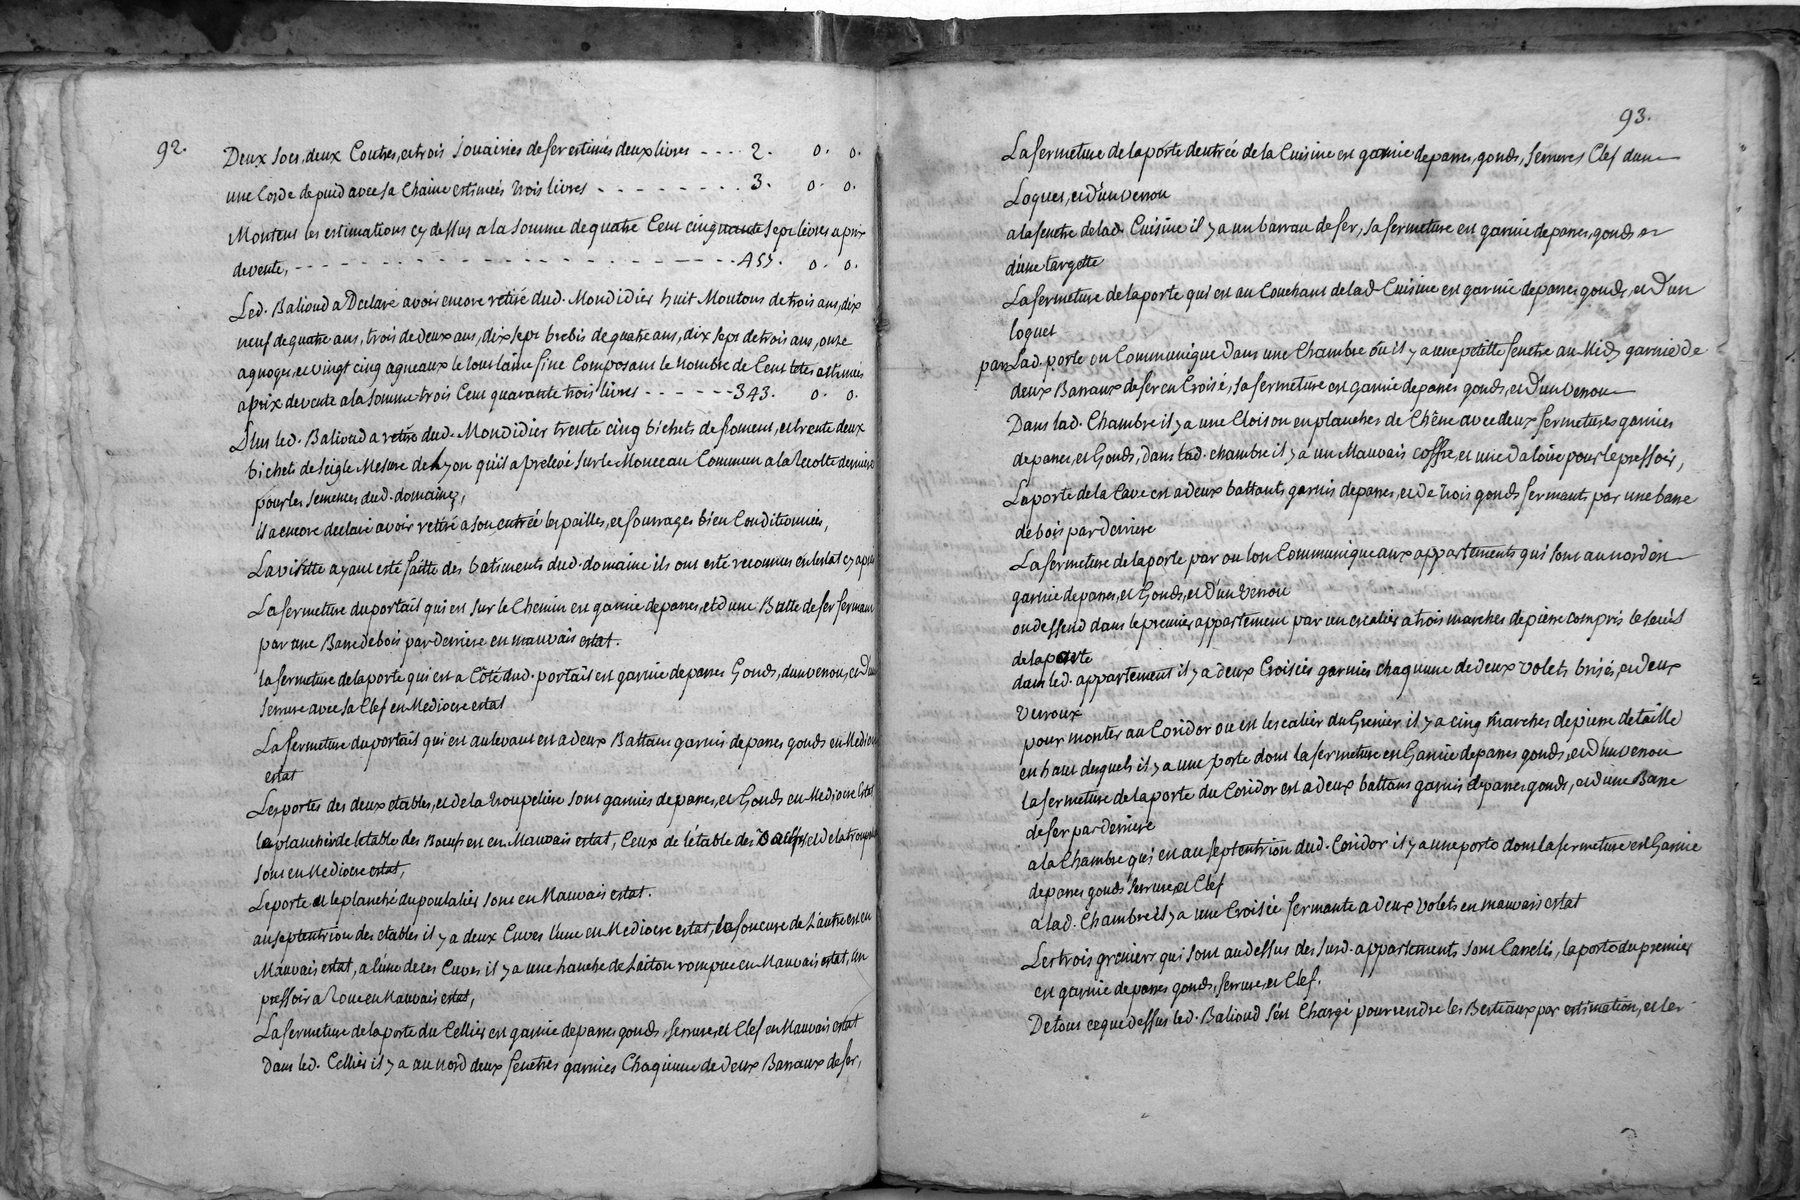 92.
Deux socs, deux Coutres, et trois souairies de fer estimés deux livres - - - - 2. 0. 0.
une Corde de puid avec sa Chaine estimeés trois livres - - - - - - - - 3. 0. 0.
Montent les estimations cy dessus a la somme de quatre Cent cinquante sept livres a prix
de vente, - - - - - - - - - - - - - - - 0. 0.
Led. Balioud a Declaré avoir encore retiré dud. Mondidier huit Moutons de trois ans, dix
neuf de quatre ans, trois de deux ans, dix sept brebis de quatre ans, dix sept de trois ans, onze
agnoges, et vingt cinq agneaux le tout laine fine Composant le nombre de Cent tetes estimés
a prix de vente a la somme trois Cent quarante trois livres - - - - - - 343. 0. 0.
Plus led. Balioud a retiré dud. Mondidier trente cinq bichets de froment, et trente deux
bichets de seigle Mesure de Lyon qu'il a prelevé sur le Monceau Commun a la recolte derniere
pour les semences dud. domaine,
il a encore declaré avoir retiré a son entrée les pailles, et fourrages bien Conditionnés,
La visitte ayant esté faitte des batiments dud. domaine ils ont esté reconnus en l'estat cy apres
La fermeture du portail qui est sur le Chemin est garnie de panes, et d'une Butte de fer fermant
par une Bare de bois par derriere en mauvais estat.
la fermeture de la porte qui est a Côté dud. portail est garnie de panes Gonds, d'un verrou, et d'une
serrure avec sa Clef en Mediocre estat
La fermeture du portail qui est au levant est a deux Battans garnis de panes gonds en Mediocre
estat
Les portes des deux etables, et de la troupeliere sont garnies de panes, et Gonds en Mediocre Estat
le plancher de l'etable des Boeufs est en Mauvais estat, Ceux de l'etable des et de la
sont en Mediocre estat,
Le porte et le planché du poulalier sont en Mauvais estat.
au septentrion des etables il y a deux Cuves l'une en Mediocre estat, la foncure de L'autre est en
Mauvais estat, a l'une de ces Cuves il y a une hanche de Laiton rompue en Mauvais estat, un
pressoir a roue en Mauvais estat,
La fermeture de la porte du Cellier est garnie de panes gonds, serrure, et Clef en Mauvais estat
Dans led. Cellier il y a au nord deux fenetres garnies Chaqu'une de deux Barraux de fer,
93.
La fermeture de la porte d'entrée de la Cuisine est garnie de panes, gonds, serrures Clef d'une
Loquet, et d'un verrou
a la fenetre de lad. Cuisine il y a un barrau de fer, sa fermeture est garnie de panes, gonds et
d'une targette
La fermeture de la porte qui est au Couchant de lad. Cuisine est garnie de panes gonds, et d'un
loquet
par Lad. porte on Communique dans une Chambre où il y a une petitte fenetre au Midy garnie de
deux Barraux de fer en Croisé, sa fermeture est garnie de panes gonds, et d'un verrou
Dans lad. Chambre il y a une Cloison en planches de Chêne avec deux fermetures garnies
de panes, et Gonds, dans lad. chambre il y a un Mauvais coffre, et une daloire pour le pressoir,
La porte de la Cave est a deux battants garnis de panes, et de trois gonds fermants par une bare
de bois par derriere
La fermeture de la porte par ou l'on Communique aux appartements qui sont au nord est
garnie de panes, et Gonds, et d'un verrou
on dessend dans le premier appartement par un escalier a trois marches de pierre compris le seuil
de la porte
dans led. appartement il y a deux Croisées garnies chaqu'une de deux volets brisés, et deux
verroux
pour monter au Coridor ou est l'escalier du Grenier il y a cinq marches de pierre de taille
en haut desquels il y a une porte dont la fermeture est Garnie de panes gonds, et d'un verrou
la fermeture de la porte du Coridor est a deux battans garnis de panes gonds, et d'une Bare
de fer par derriere
a la Chambre qui est au septentrion dud. Coridor il y a une porte dont la fermeture est Garnie
de panes gonds serrure, et Clef
a lad. Chambre il y a une Croisée fermante a deux volets en mauvais estat
Les trois greniers qui sont au dessus des susd. appartements sont Carrelés, la porte du premier
est garnie de panes gonds, serrure, et Clef.
De tout ce que dessus led. Balioud s'est Chargé pour rendre les Bestiaux par estimation, et les